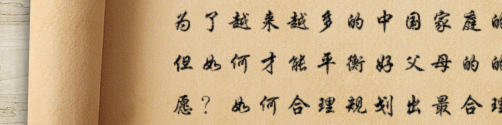 为了越来越多的中国家庭的
但如何才能平衡好父母的的
愿？如何合理规划出最合理